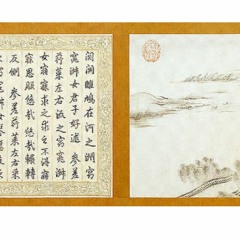 關關雎鳩在河之洲窈
窕淑女君子好逑 參差
荇菜左右流之窈窕淑
女寤寐求之求之不得寤
寐思服悠哉悠哉輾轉
反側 參差荇菜左右采
之窈窕淑女琴瑟友之